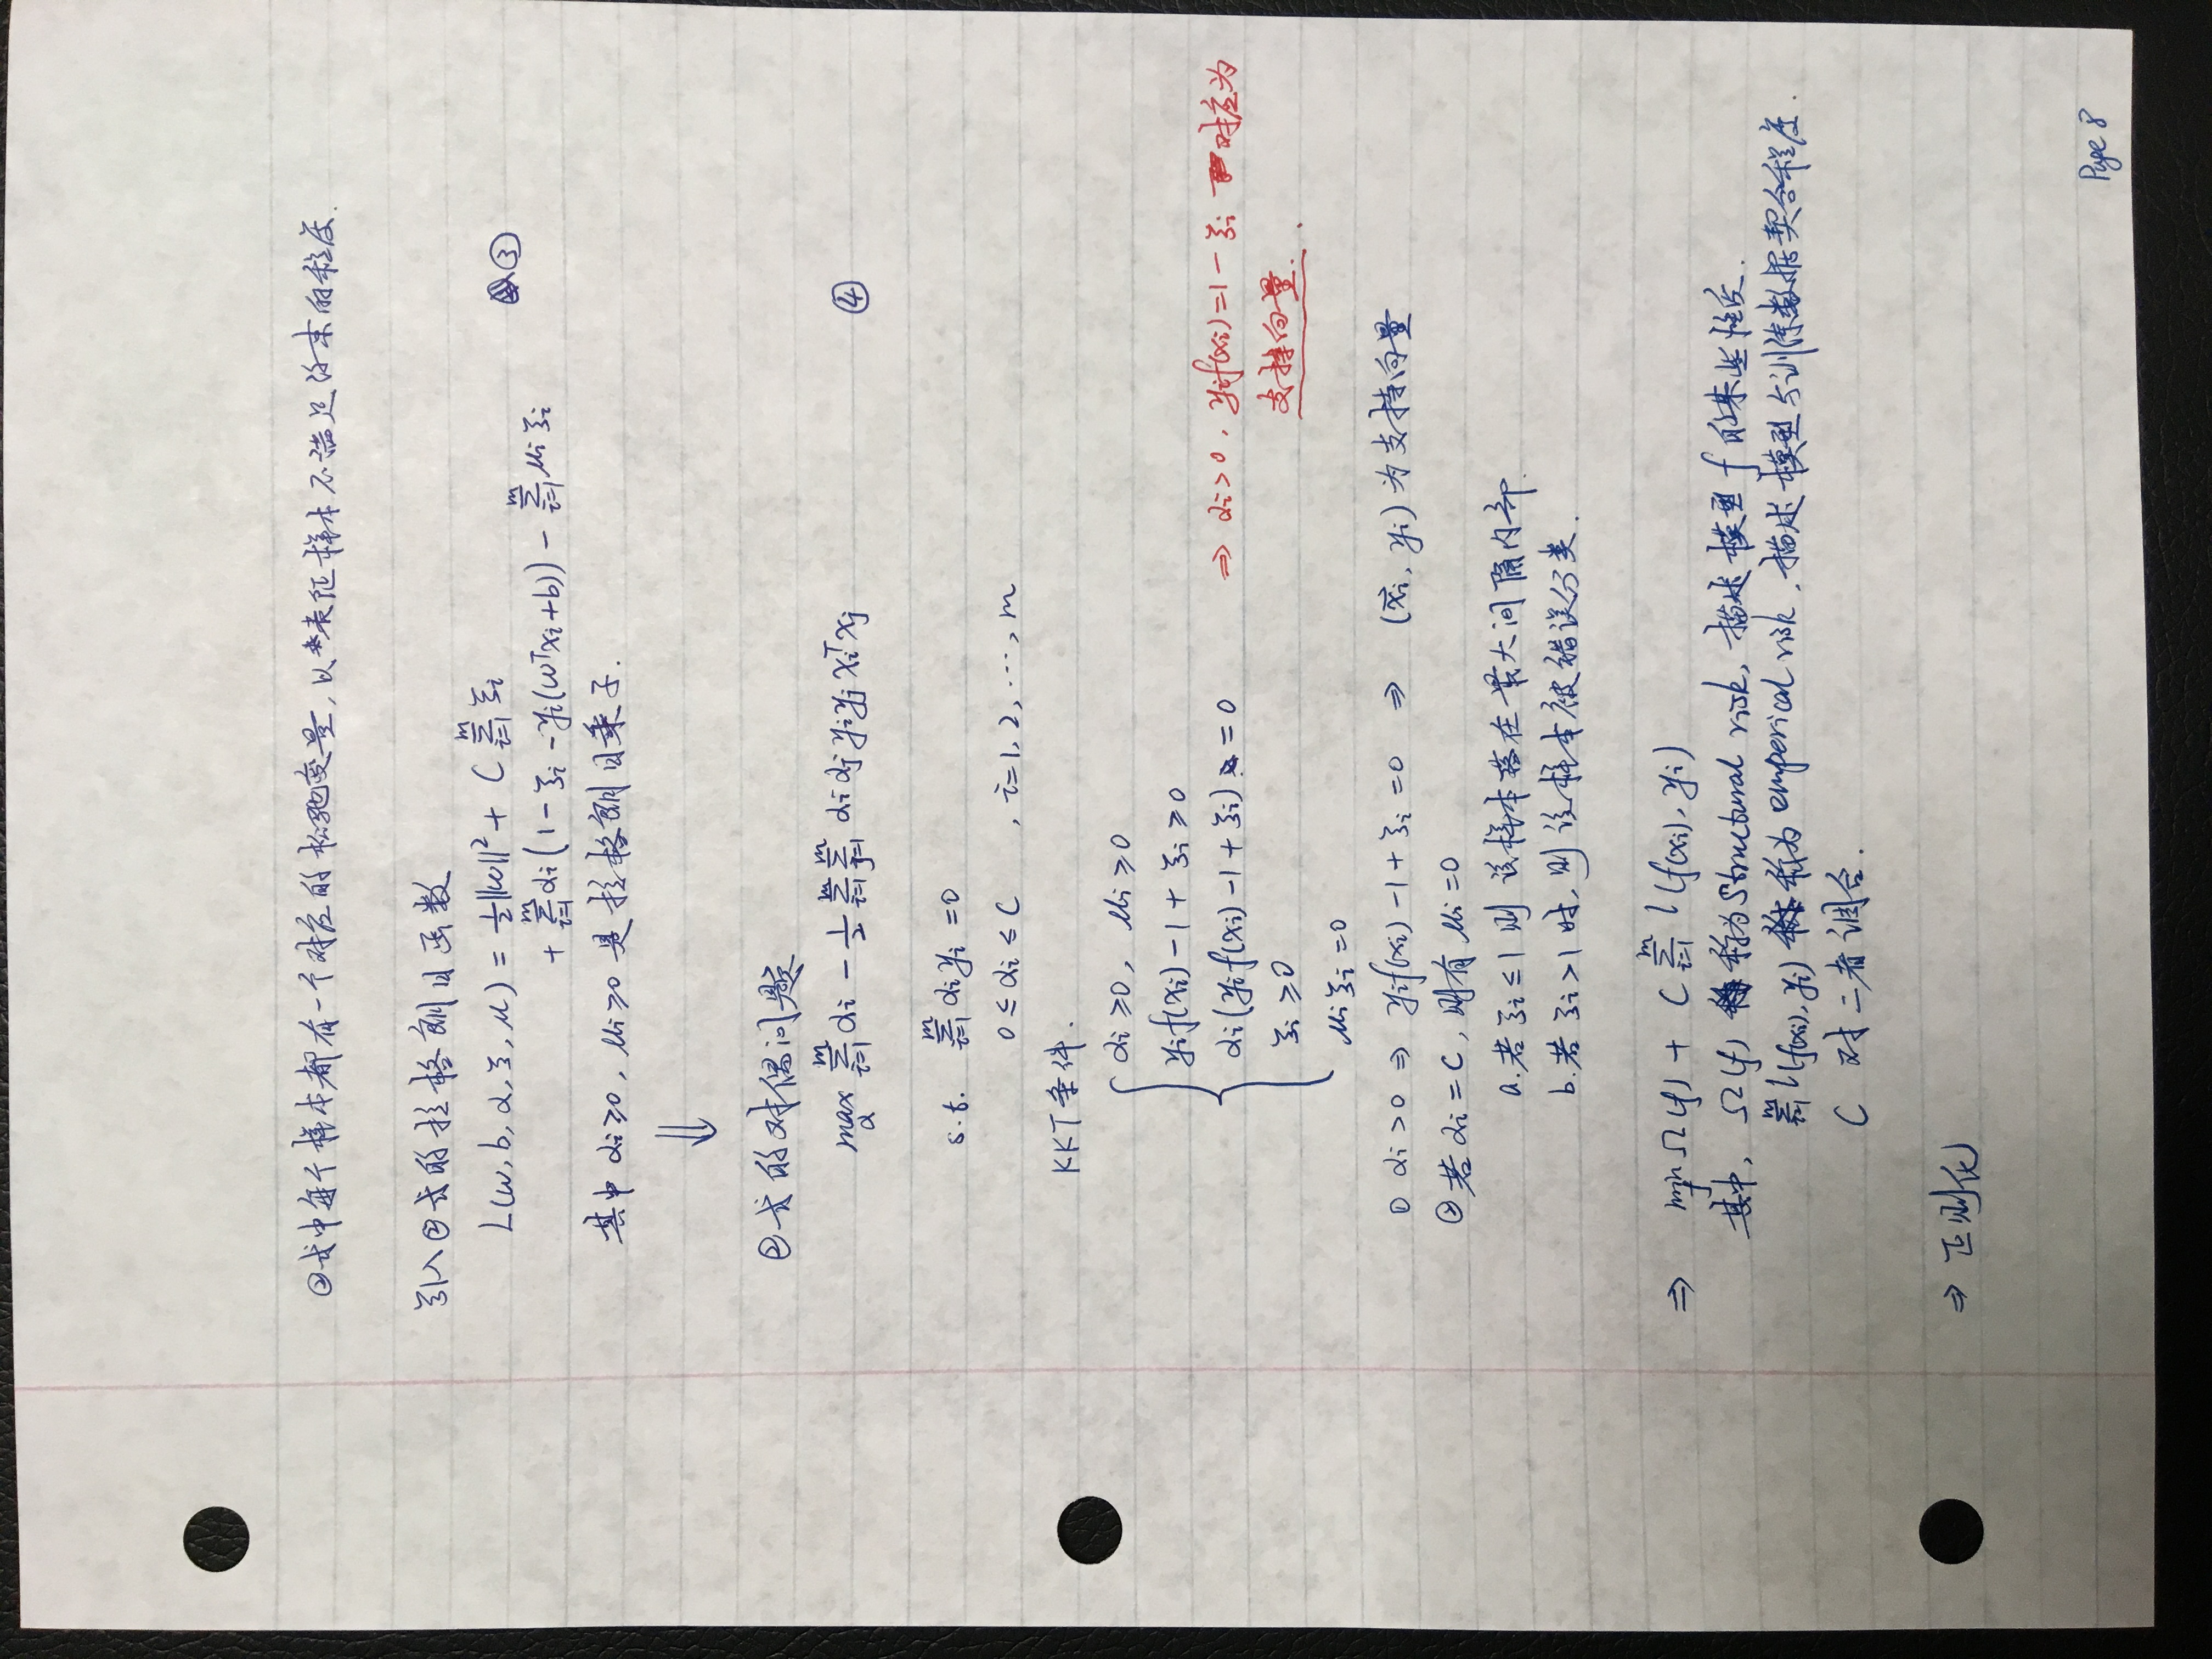 ②式中每个样本都有一个对应的松弛变量,以表征样本不满足约束的程度.
引入②式的拉格朗日函数
L(w, b, α, ξ, μ) = ½||w||² + C Σᵢ₌₁ᵐ ξᵢ ③
+ Σᵢ₌₁ᵐ αᵢ(1 - ξᵢ - yᵢ(wᵀxᵢ+b)) - Σᵢ₌₁ᵐ μᵢ ξᵢ
其中 αᵢ≥0, μᵢ≥0 是拉格朗日乘子.
⇓
②式的对偶问题
max_α Σᵢ₌₁ᵐ αᵢ - ½ Σᵢ₌₁ᵐ Σⱼ₌₁ᵐ αᵢ αⱼ yᵢ yⱼ xᵢᵀ xⱼ ④
s.t. Σᵢ₌₁ᵐ αᵢyᵢ = 0
0 ≤ αᵢ ≤ C , i=1, 2, ⋯, m
KKT条件.
αᵢ ≥0, μᵢ ≥0
yᵢf(xᵢ) - 1 + ξᵢ ≥ 0
αᵢ(yᵢf(xᵢ) - 1 + ξᵢ) = 0 ⇒ αᵢ>0, yᵢf(xᵢ)=1-ξᵢ 对应为
支持向量.
ξᵢ ≥0
μᵢξᵢ = 0
① αᵢ > 0 ⇒ yᵢf(xᵢ) - 1 + ξᵢ = 0 ⇒ (x⃗ᵢ, yᵢ) 为支持向量
② 若 αᵢ = C, 则有 μᵢ = 0
a. 若 ξᵢ ≤ 1 则 该样本落在最大间隔内部.
b. 若 ξᵢ > 1 时, 则该样本被错误分类.
⇒ min_f Ω(f) + C Σᵢ₌₁ᵐ l(f(xᵢ), yᵢ)
其中, Ω(f) 称为 Structural risk, 描述模型 f 的某些性质.
Σᵢ₌₁ᵐ l(f(xᵢ), yᵢ) 称为 emperical risk, 描述模型与训练数据契合程度.
C 对二者调合.
⇒ 正则化
Page 8